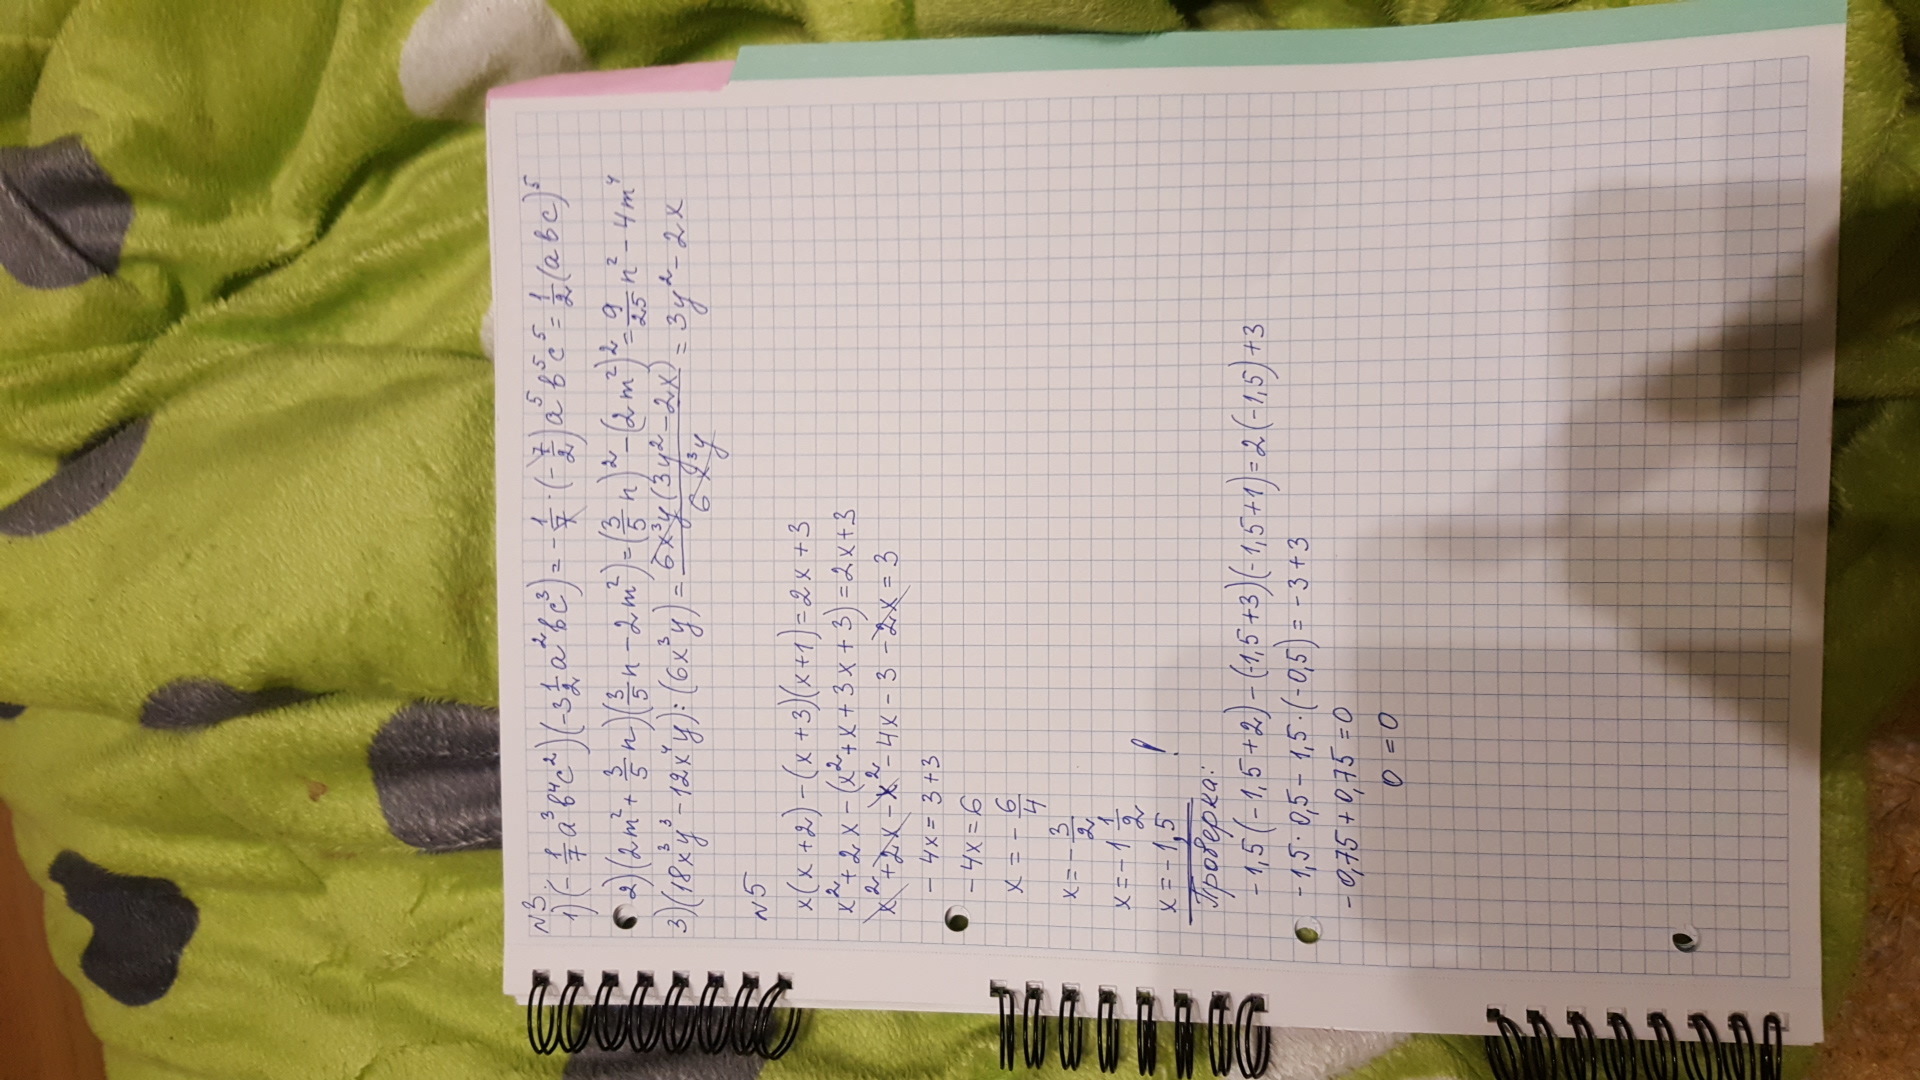 N3.
1) (-1/7 a³b⁴c²)(-3 1/2 a²bc³) = -1/7 · (-7/2) a⁵b⁵c⁵ = 1/2 (abc)⁵
2) (2m² + 3/5 n)(3/5 n - 2m²) = (3/5 n)² - (2m²)² = 9/25 n² - 4m⁴
3) (18x³y³ - 12x⁴y) : (6x³y) = 6x³y(3y² - 2x)/6x³y = 3y² - 2x
N5
x(x+2) - (x+3)(x+1) = 2x+3
x² + 2x - (x² + x + 3x + 3) = 2x+3
x² + 2x - x² - 4x - 3 - 2x = 3
- 4x = 3+3
- 4x = 6
x = - 6/4
x = - 3/2
x = -1 1/2
x = -1,5
Проверка:
-1,5(-1,5+2) - (-1,5+3)(-1,5+1) = 2(-1,5)+3
-1,5 · 0,5 - 1,5 · (-0,5) = -3+3
-0,75 + 0,75 = 0
0 = 0